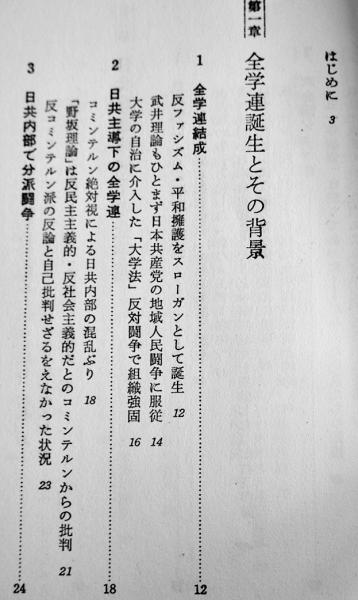 はじめに 3
第一章 全学連誕生とその背景
1 全学連結成……………12
反ファシズム・平和擁護をスローガンとして誕生 12
武井理論もひとまず日本共産党の地域人民闘争に服従 14
大学の自治に介入した「大学法」反対闘争で組織強固 16
2 日共主導下の全学連……………18
コミンテルン絶対視による日共内部の混乱ぶり 18
「野坂理論」は反民主主義的・反社会主義的だとのコミンテルンからの批判 21
反コミンテルン派の反論と自己批判せざるをえなかった状況 23
3 日共内部で分派闘争……………24